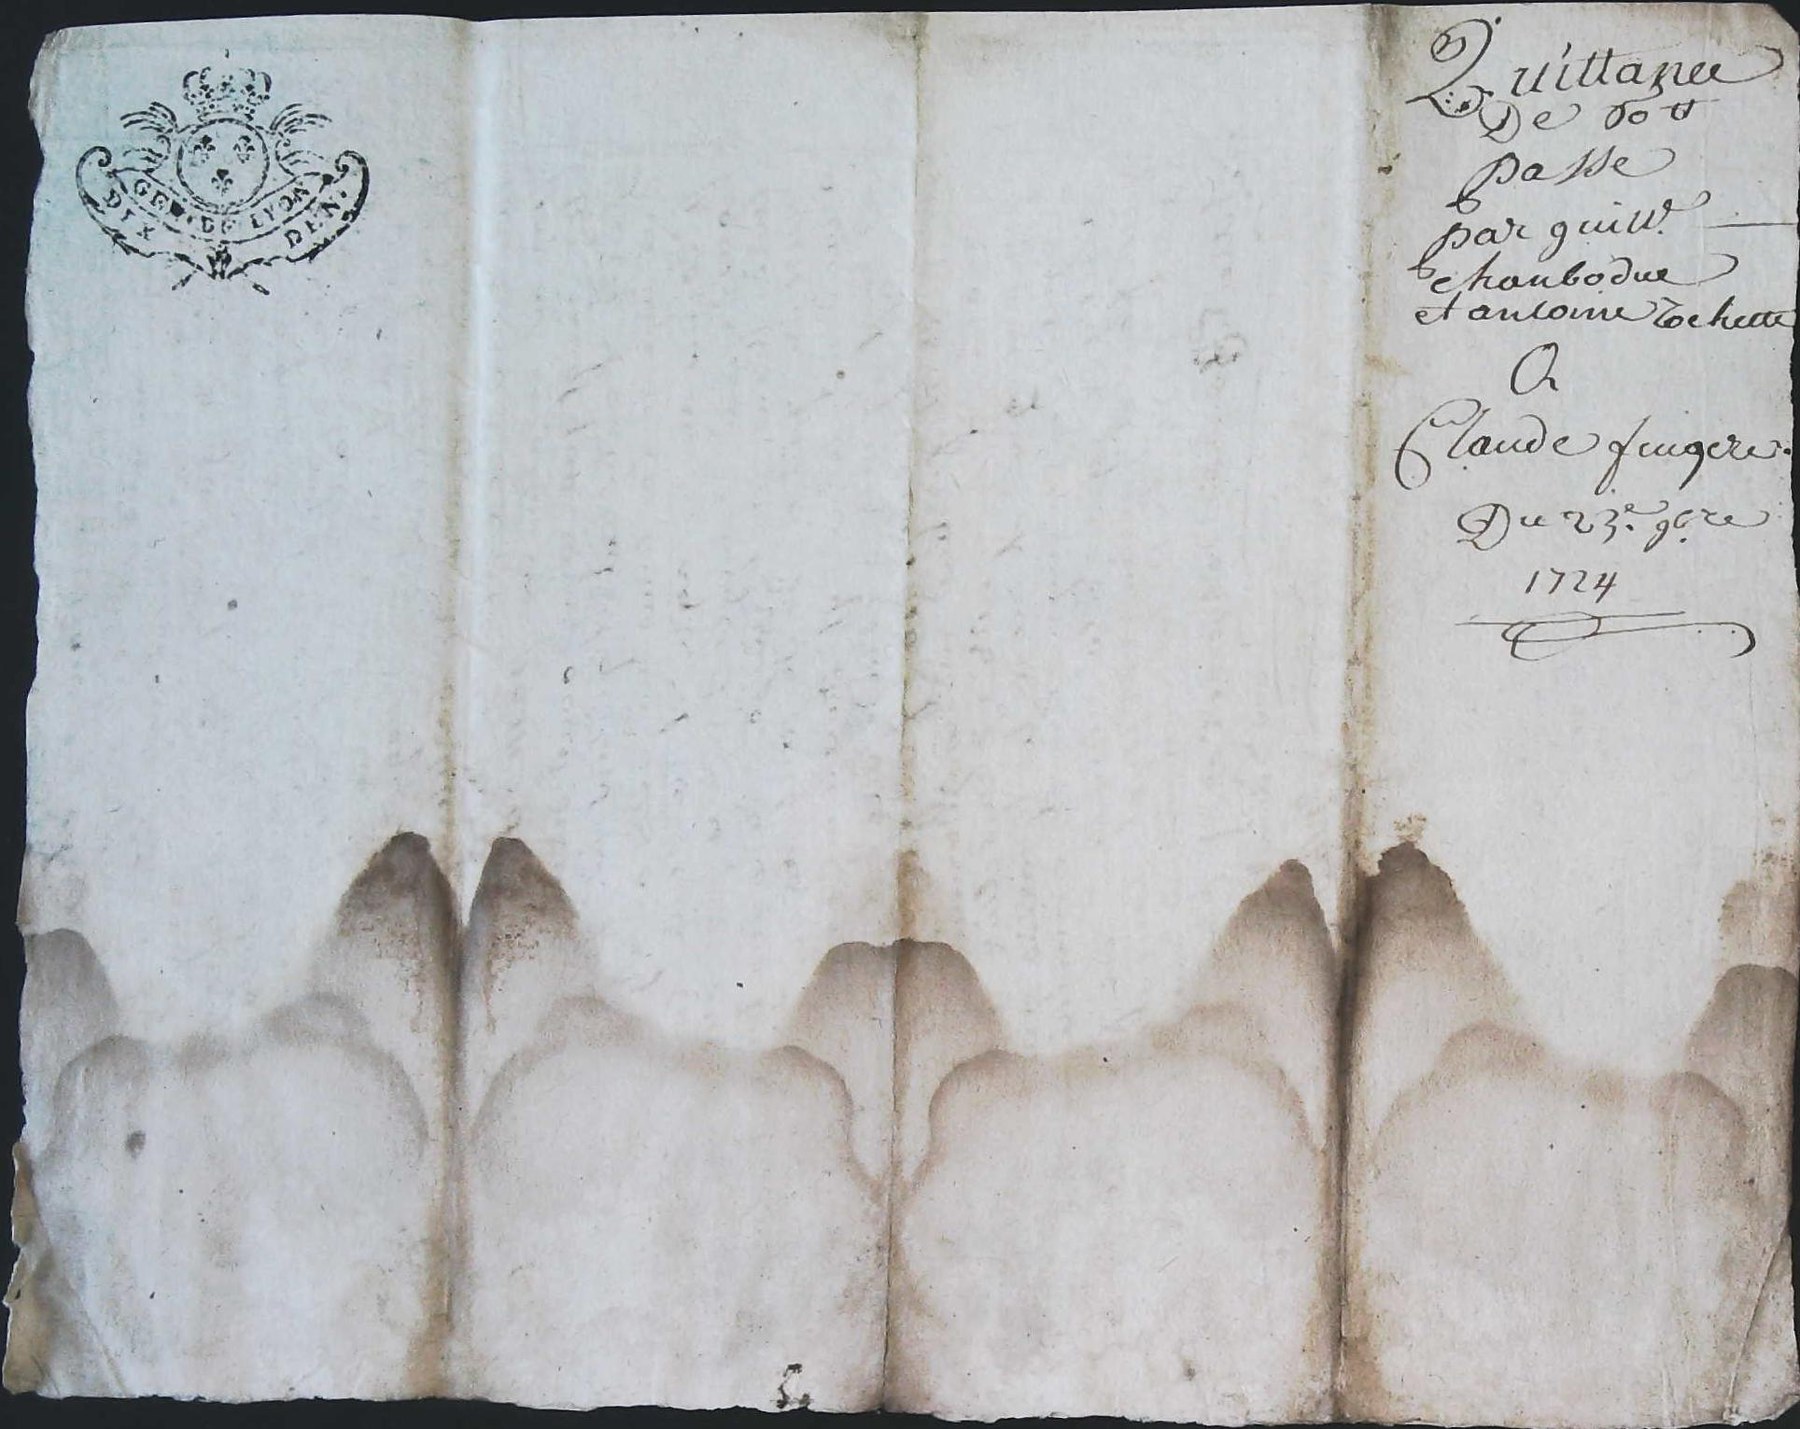 GEN. DE LYON
DIX DEN.
Quittance
De 60 tt
passé
par guill.e
chanbodue
et antoine Rochette
A
Claude fingere
Du 23.e 9b.re
1724